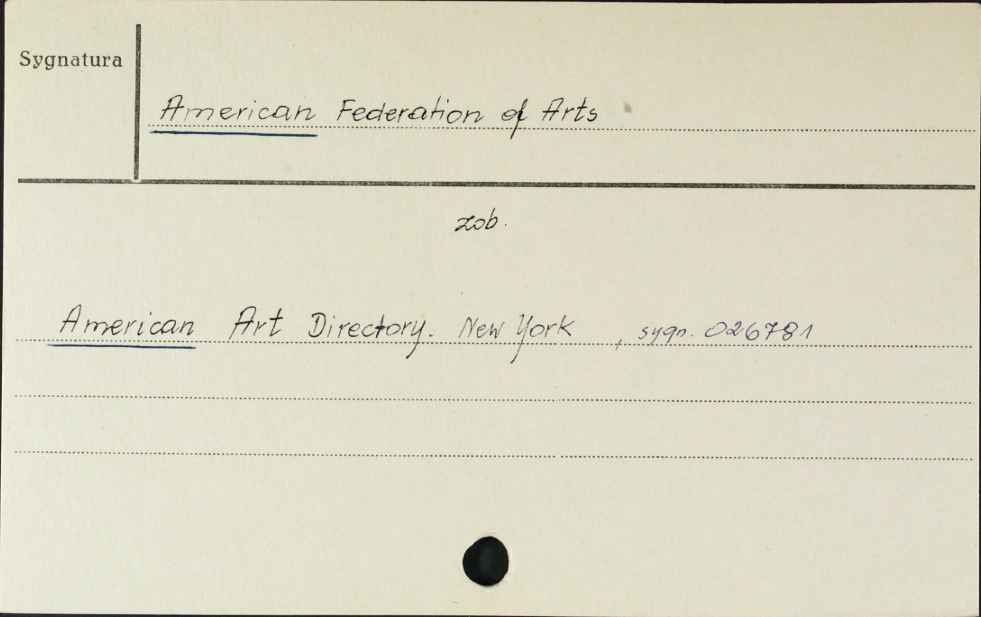 Sygnatura
American Federation of Arts
zob.
American Art Directory. New York , sygn. 026781